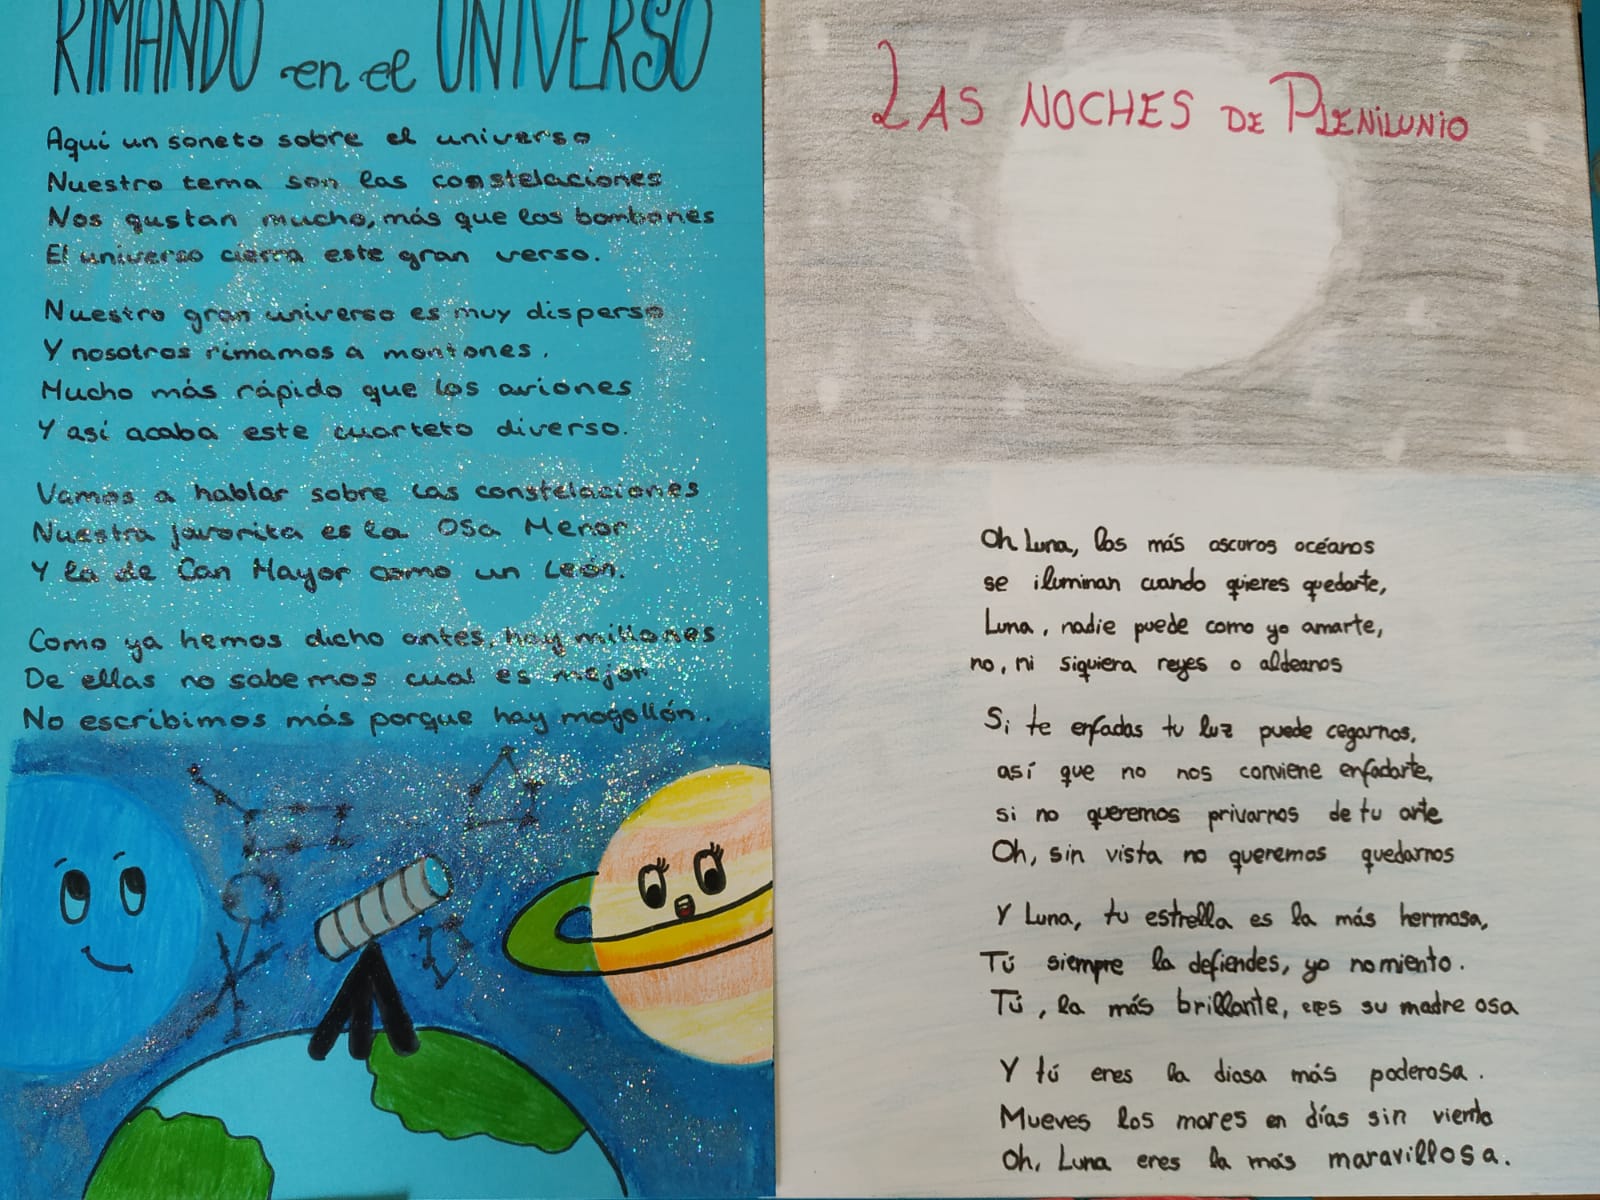 RIMANDO en el UNIVERSO
Aquí un soneto sobre el universo
Nuestro tema son las constelaciones
Nos gustan mucho, más que los bombones
El universo cierra este gran verso.
Nuestro gran universo es muy disperso
Y nosotros rimamos a montones.
Mucho más rápido que los aviones
Y así acaba este cuarteto diverso.
Vamos a hablar sobre las constelaciones
Nuestra favorita es la Osa Menor
Y la de Can Mayor como un León.
Como ya hemos dicho antes, hay millones
De ellas no sabemos cual es mejor
No escribimos más porque hay mogollón.
LAS NOCHES DE PLENILUNIO
Oh Luna, los más oscuros océanos
se iluminan cuando quieres quedarte,
Luna, nadie puede como yo amarte,
no, ni siquiera reyes o aldeanos
Si te enfadas tu luz puede cegarnos,
así que no nos conviene enfadarte,
si no queremos privarnos de tu arte
Oh, sin vista no queremos quedarnos
Y Luna, tu estrella es la más hermosa,
Tú siempre la defiendes, yo no miento.
Tú, la más brillante, eres su madre osa
Y tú eres la diosa más poderosa.
Mueves los mares en días sin viento
Oh, Luna eres la más maravillosa.